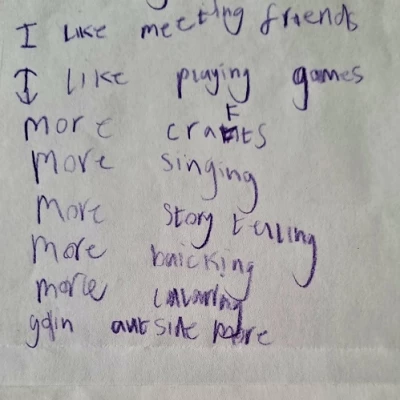 I like meeting friends
I like playing games
more crafts
more singing
more story telling
more baicking
more
goin autside more